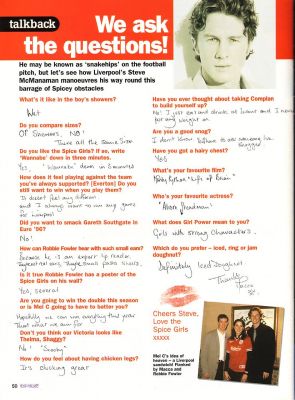 talkback
We ask
the questions!
He may be known as 'snakehips' on the football
pitch, but let's see how Liverpool's Steve
McManaman manoeuvres his way round this
barrage of Spicey obstacles
What's it like in the boy's showers?
Wet
Do you compare sizes?
Of Showers, NO!
There all the same size.
Do you like the Spice Girls? If so, write
'Wannabe' down in three minutes.
Yes, "Wannabe" down in 3 minutes
How does it feel playing against the
team you've always supported? [Everton] Do you
still want to win when you play them?
It doesn't feel any different
and I always want to win any game
for Liverpool
Did you want to smack Gareth Southgate in
Euro '96?
No!
How can Robbie Fowler hear with such small ears?
Because he is an expert lip reader.
Is it true Robbie Fowler has a poster of the
Spice Girls on his wall?
Yes, several
Are you going to win the double this season
or is Mel C going to have to better you?
Hopefully we can win everything this year
That what we aim for
Don't you think our Victoria looks like
Thelma, Shaggy?
No! "Scooby"
How do you feel about having chicken legs?
It's clucking great
Have you ever thought about taking Complan
to build yourself up?
No! I just eat and drink at home and I never
put any weight on
Are you a good snog?
I don't know
Have you got a hairy chest?
Yes
What's your favourite film?
Monty Python "Life of Brian"
Who's your favourite actress?
What does Girl Power mean to you?
Girls with strong characters.
Which do you prefer – iced, ring or jam
doughnut?
Definitely Iced Doughnut
Cheers Steve,
Love the
Spice Girls
xxxxx
Mel C's idea of
heaven – a Liverpool
sandwich! Flanked
by Macca and
Robbie Fowler
50